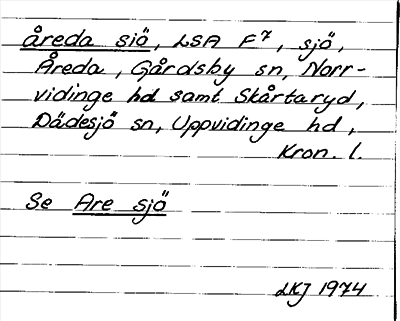 åreda siö, LSA F7, sjö,
Åreda, Gårdsby sn, Norr-
vidinge hd samt Skårtaryd,
Dädesjö sn, Uppvidinge hd,
Kron. l.
Se Are sjö
LKJ 1974